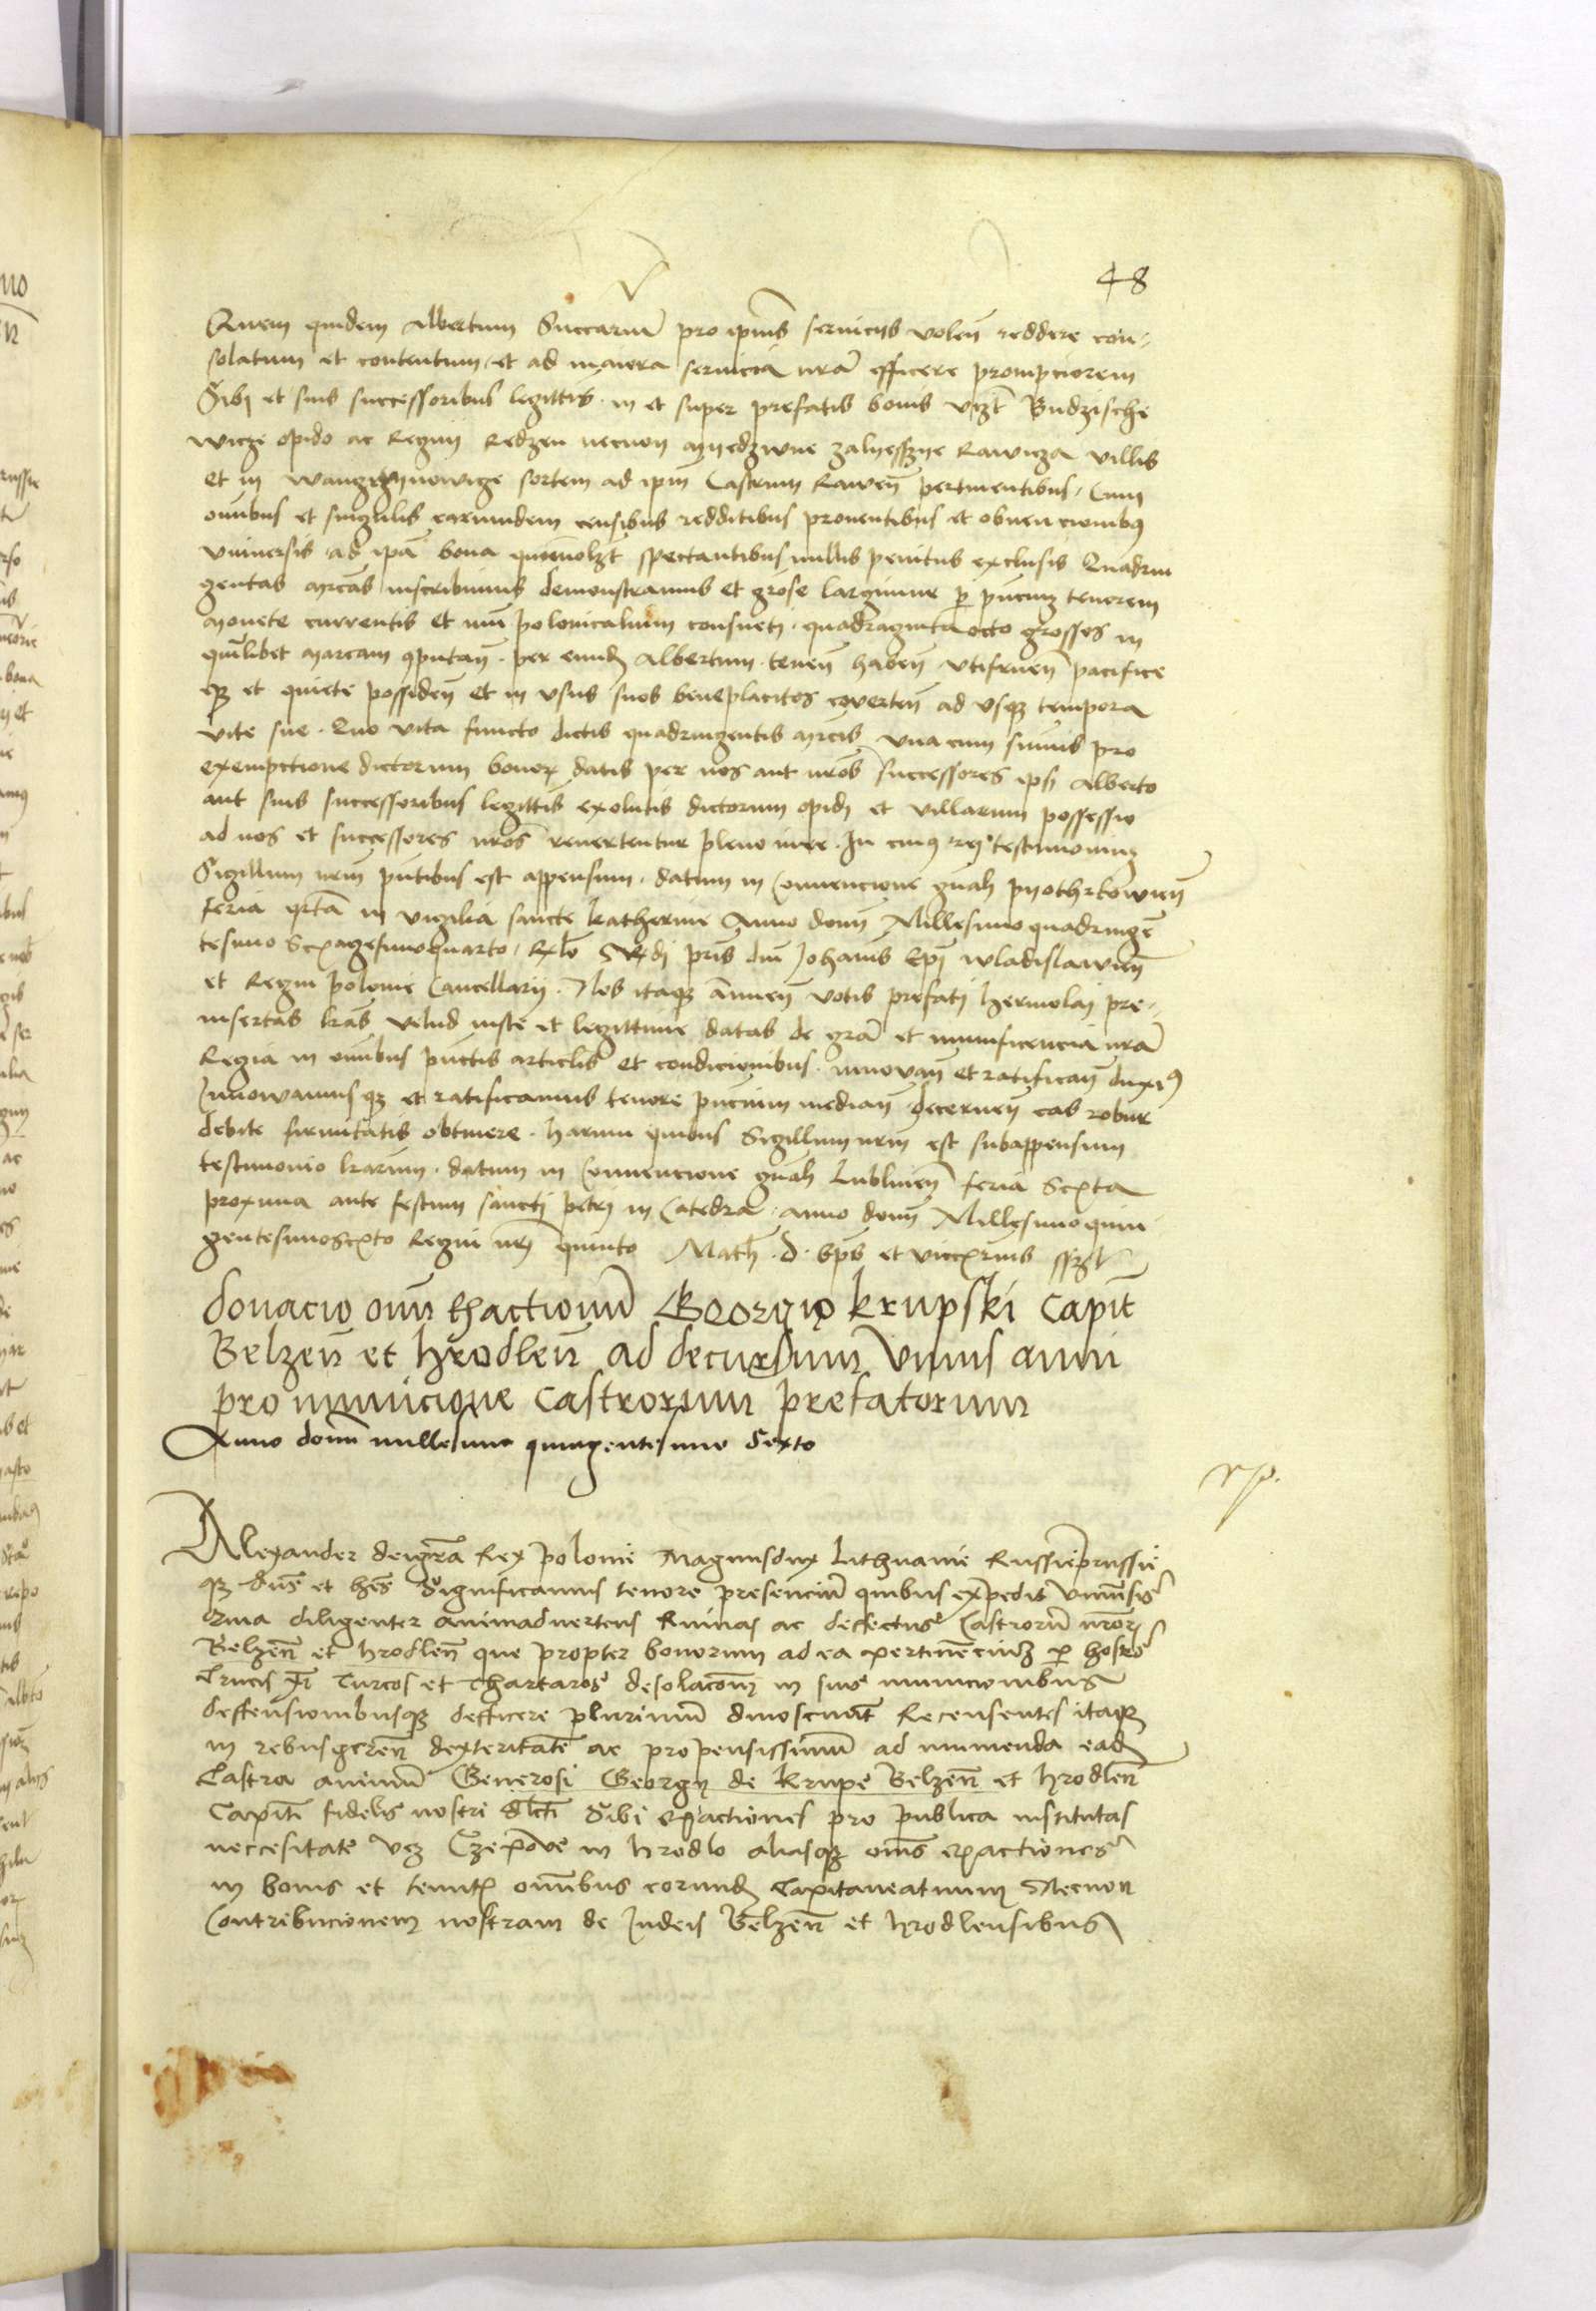 48
Quem quidem Albertum Succariū pro ipius seruicijs volen̄ reddere con-
solatum et contentum et ad maiora seruicia nrā efficere prompciorem
Sibi et suis successoribus legittis in et super prefatis bonis vczt Budzische
wicze opido ac Regnij Redzen necnon Myedzwne zalyesszye Rawicza villis
et in sortem ad ipm Castrum Rawen̄ pertinentibus Cum
omibus et singulis earundem censibus redditibus prouentibus et obuencionibus
vniuersis ad ipā bona spectantibus nullis penitus exclusis Quadrin
gentas mrcas inscribimus demonstramus et g̅rose largimur p pn̄cium tenorem
Monete currentis et nūi polonicalium consueti quadraginta octo grossos in
qūilibet marcam 9putan̄ per eund Albertum tenen̄ haben̄ vtifruen̄ pacifice
q3 et quiete possiden̄ et in vsus suos beneplacitos cōuerten̄ ad vsq3 tempora
vite sue Quo vita functo dictis quadringentis mrcis vna cum sūmis pro
exempctione dictorum bonor datis per nos aut nrōs successores ipsi Alberto
aut suis successoribus legittis exolutis dictorum opidi et villarum possessio
ad nos et successores nrōs reuertentur pleno iure In cuius rei testimonium
Sigillum nrm̄ pn̄tibus est appensum datum in Conuencione gn̄ali Pyothrkowien̄
feria qrta in vigilia sancte Katherine Anno domī Millesimo quadringē
tesimo Sexagesimoquarto Rlō prīs dni Johanis Epi wladislawien̄
et Regni polonie Cancellarij Nos itaq3 Annuen̄ votis prefati hermolai pre-
insertas lrās velud iuste et legittime datas de grā et munificencia nrā
Regia in omibus pūctis articlis et condicionibus innouan̄ et ratifican̄ duximus
Innowamusq3 et ratificamus tenore pn̄cium median̄ decernen̄ eas robur
debite firmitatis obtinere harum quibus Sigillum nrm̄ est subappensum
testimonio lrarum datum in Conuencione gn̄ali Lublinen̄ feria Sexta
proxima ante festum sancti petri in Catedra anno domī Millesimoquin
gentesimosexto Regni nrī quinto Math d Eps et vicecrius sszt
donacio oniū exactionū Georgio krupski Capit̄
Belzen̄ et hrodlen̄ ad decursum vnius anni
pro municione castrorum prefatorum
Anno domī millesimo quingentesimo Sexto
rp.
Alexander deigrā Rex polonie Magnusdux Lithuanie Russie prussie
q3 dn̄s et hēs Significamus tenore presenciū quibus expedit vniūsis
diligenter animaduertens Ruinas ac deffectus Castrorū nrōr
Belzen̄ et hrodlen̄ que propter bonorum ad ea pertinēcium p hostes
Crucis xī Turcos et Thartaros desolacōem in suis municionibus
deffensionibusq3 defficere plurimū dinoscunt̄ Recensentes itaq3
in rebusgeren̄ dexteritatē ac propensissimū ad munienda ead
Castra animū Generosi Georgij de Krupe Belzen̄ et hrodlen̄
Capit̄i fidelis nostri dlcti Sibi exactiones pro publica institutas
neccesitate vcz Czopowe in hrodlo aliasq3 oms exactiones
in bonis et tenut̄ onībus eorund Capitaneatuum Necnon
Contribucionem nostram de Judeis Belzen̄ et hrodlensibus